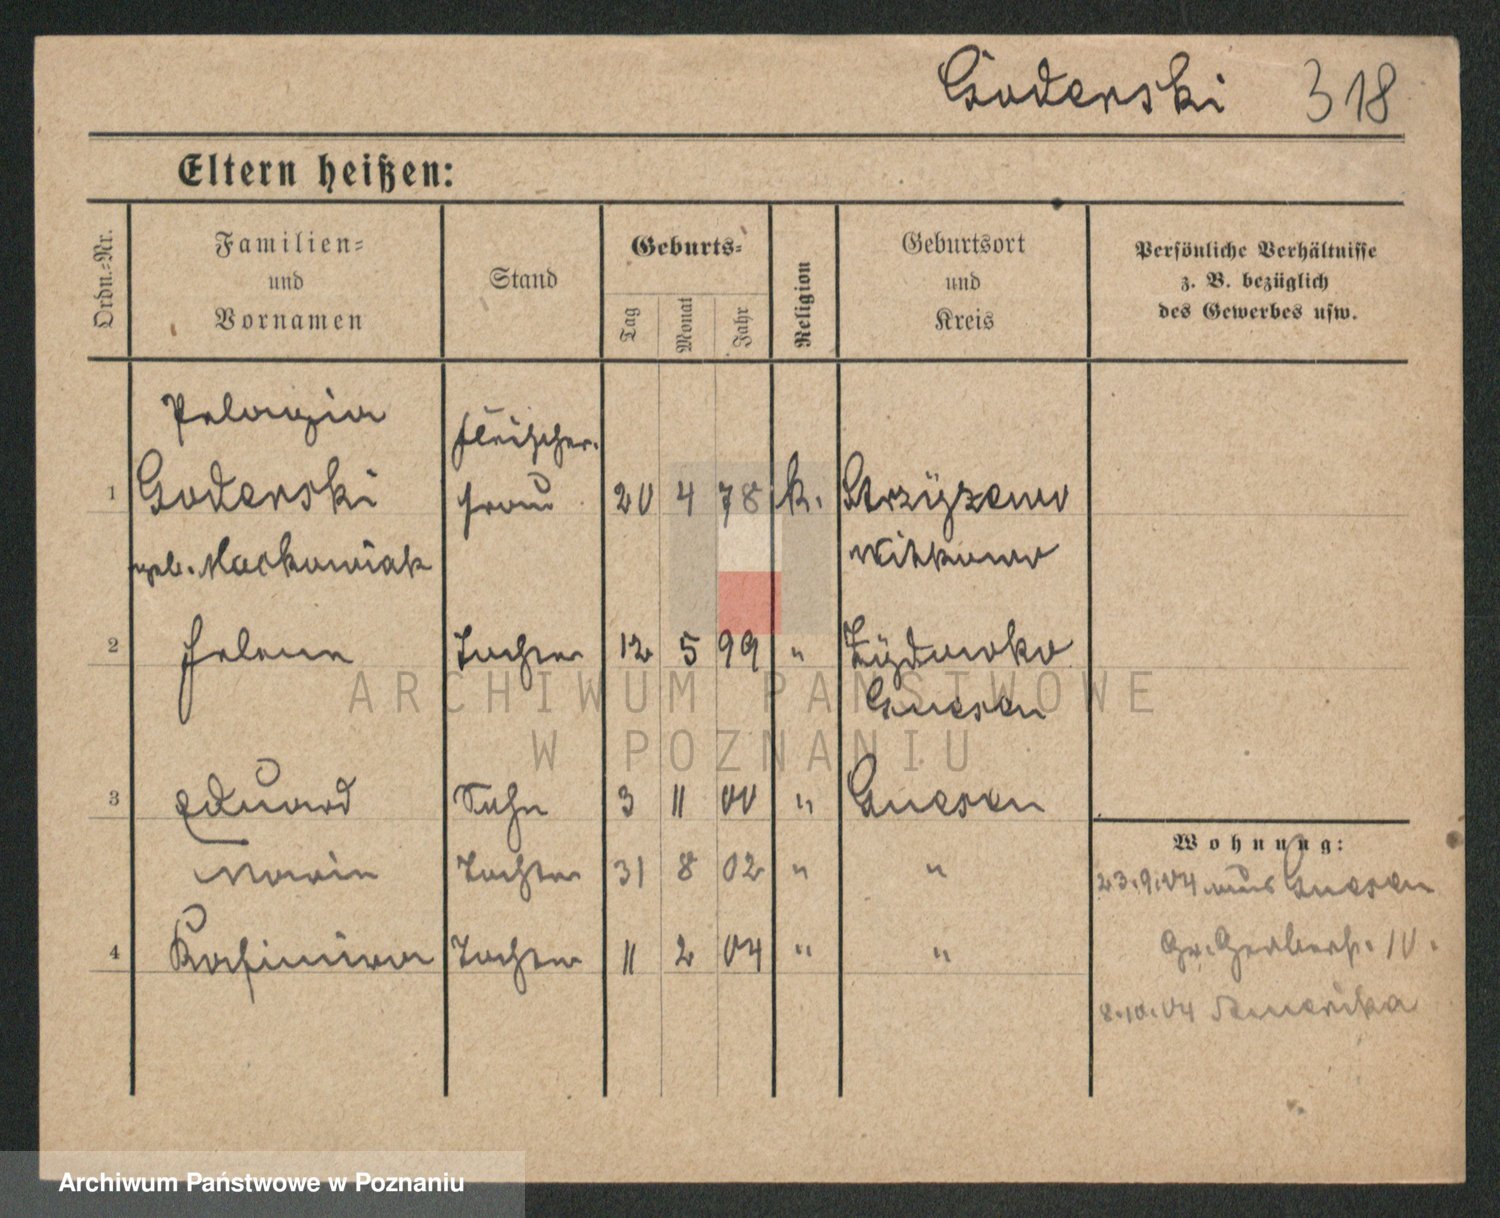 Goderski 318
Eltern heißen:
Ordn.=Nr.
Familien=
und
Vornamen
Stand
Geburts=
Tag
Monat
Jahr
Religion
Geburtsort
und
Kreis
Persönliche Verhältnisse
z. B. bezüglich
des Gewerbes usw.
Pelagia
Fleischer-
1 Goderski frau 20 4 78 k. Strzyzewo
geb. Maćkowiak Witkowo
2 Helene Tochter 12 5 99 " Zydowko
Gnesen
3 Eduard Sohn 3 11 00 " Gnesen
Wohnung:
Maria Tochter 31 8 02 " "
23.9.04 aus Gnesen
4 Kasimira Tochter 11 2 04 " "
Gr. Gerberstr. 10.
8.10.04 Amerika
ARCHIWUM PAŃSTWOWE
W POZNANIU
Archiwum Państwowe w Poznaniu